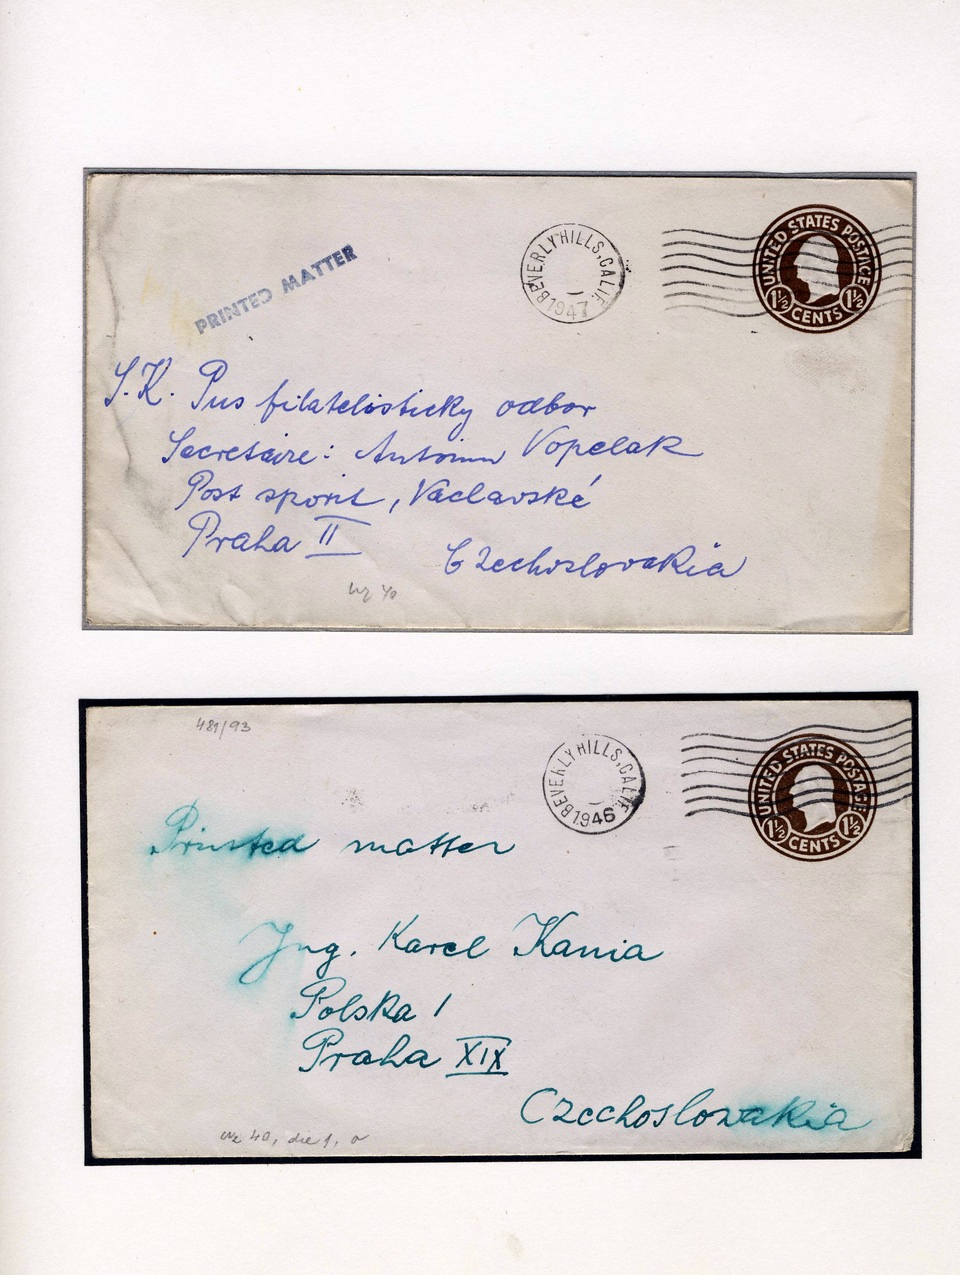 PRINTED MATTER
BEVERLY HILLS, CALIF.
1947
UNITED STATES POSTAGE
1½ CENTS 1½
S.K. Pus filatelisticky odbor
Secretaire: Antonin Vopelak
Post sporit, Vaclavské
Praha II
Czechoslovakia
481/93
BEVERLY HILLS, CALIF.
1946
UNITED STATES POSTAGE
1½ CENTS 1½
Printed matter
Jng. Karel Kania
Polska 1
Praha XIX
Czechoslovakia
wz 40, die 1, a